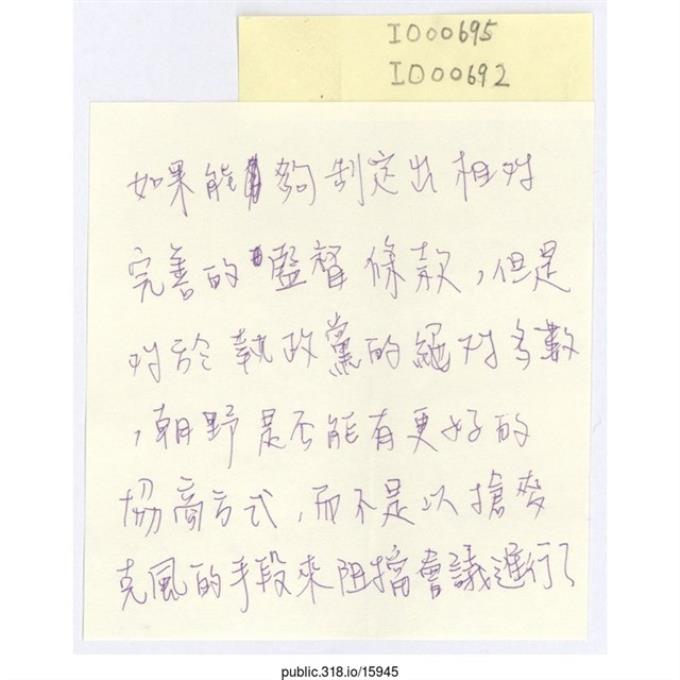 IO00695
IO00692
如果能夠制定出相对
完善的監督條款,但是
对於執政黨的絕对多數
,朝野是否能有更好的
協商方式,而不是以搶麥
克風的手段來阻擋會議進行?
public.318.io/15945